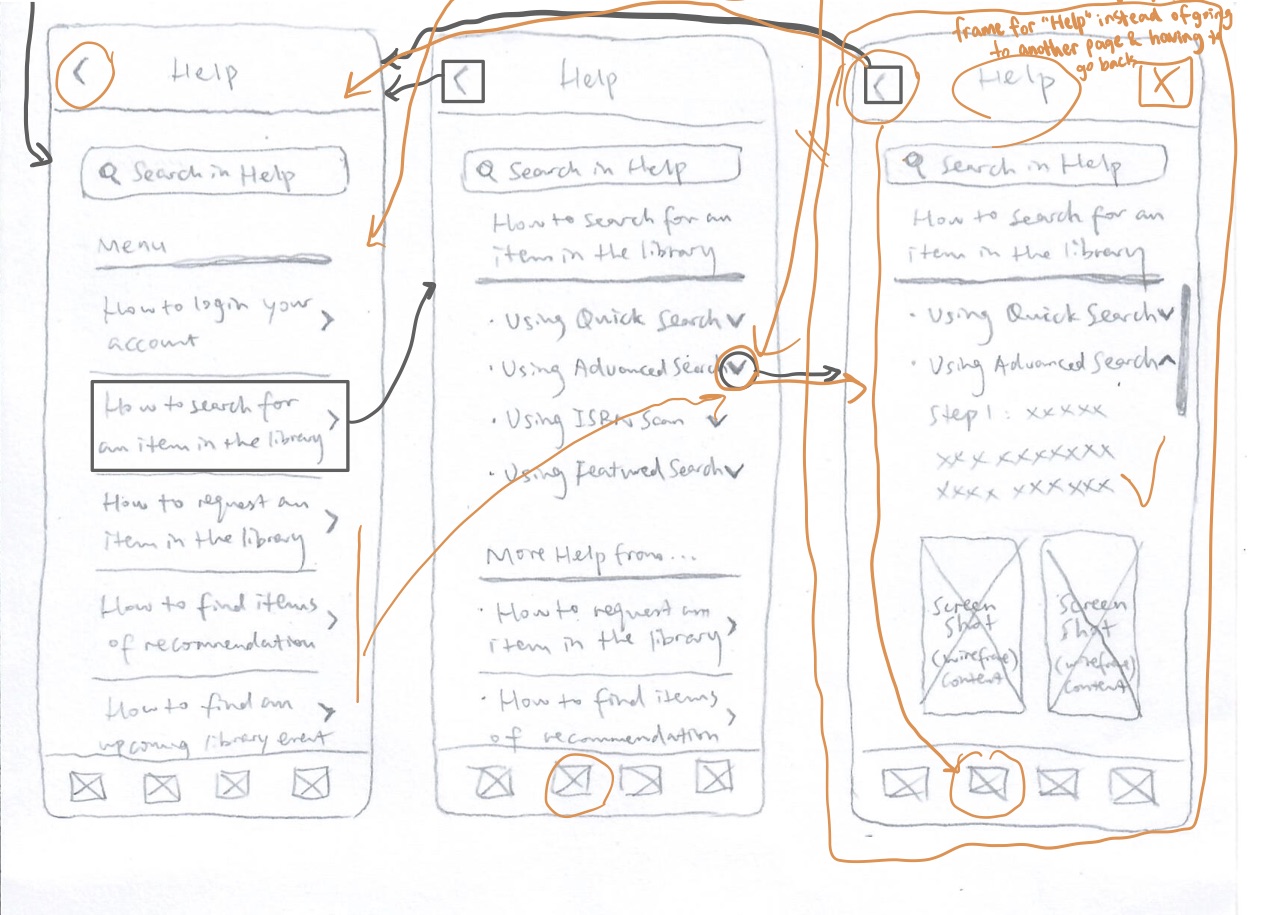 frame for "Help" instead of going
to another page & having to
go back
Help
Search in Help
Menu
How to login your
account
How to search for
an item in the library
How to request an
item in the library
How to find items
of recommendation
How to find an
upcoming library event
Help
Search in Help
How to search for an
item in the library
• Using Quick Search
• Using Advanced Search
• Using ISBN Scan
• Using Featured Search
More Help from...
• How to request an
item in the library
• How to find items
of recommendation
Help
Search in Help
How to search for an
item in the library
• Using Quick Search
• Using Advanced Search
Step 1 : xxxxx
xx x xxxxxxx
xxxx xxxxxx
Screen
Shot
(wireframe)
content
Screen
Shot
(wireframe)
content